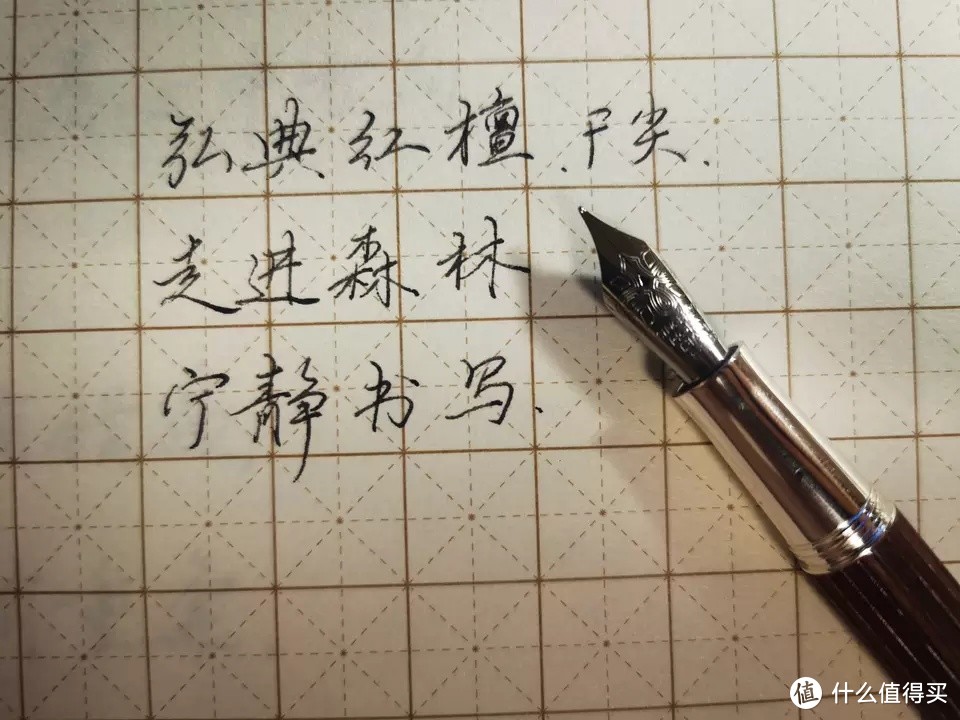 弘典红檀.F尖.
走进森林
宁静书写.
值 什么值得买